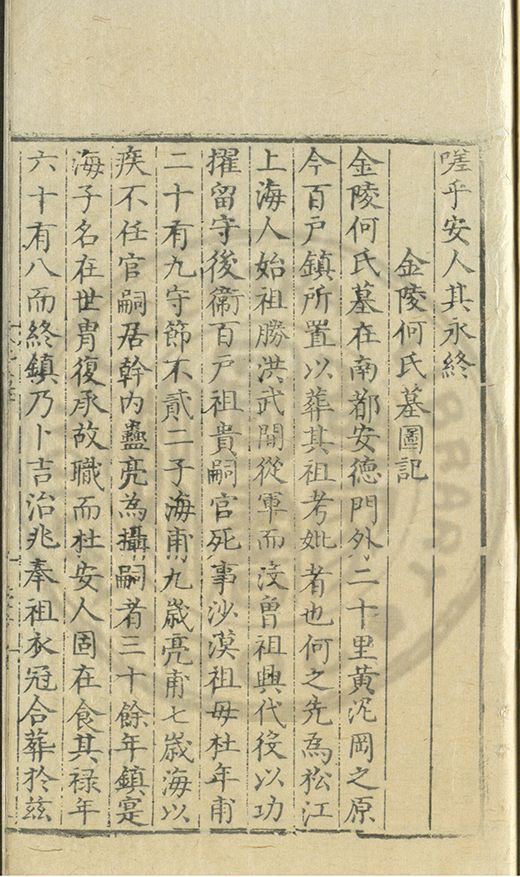 嗟乎安人其永終
金陵何氏墓圖記
金陵何氏墓在南都安德門外二十里黃泥岡之原
今百戶鎮所置以葬其祖考妣者也何之先為松江
上海人始祖勝洪武間從軍而沒曾祖興代役以功
擢留守後衛百戶祖貴嗣官死事沙漠祖母杜年甫
二十有九守節不貳二子海甫九歲亮甫七歲海以
疾不任官嗣居幹內蠱亮為攝嗣者三十餘年鎮寔
海子名在世冑復承故職而杜安人固在食其祿年
六十有八而終鎮乃卜吉治兆奉祖衣冠合葬於茲